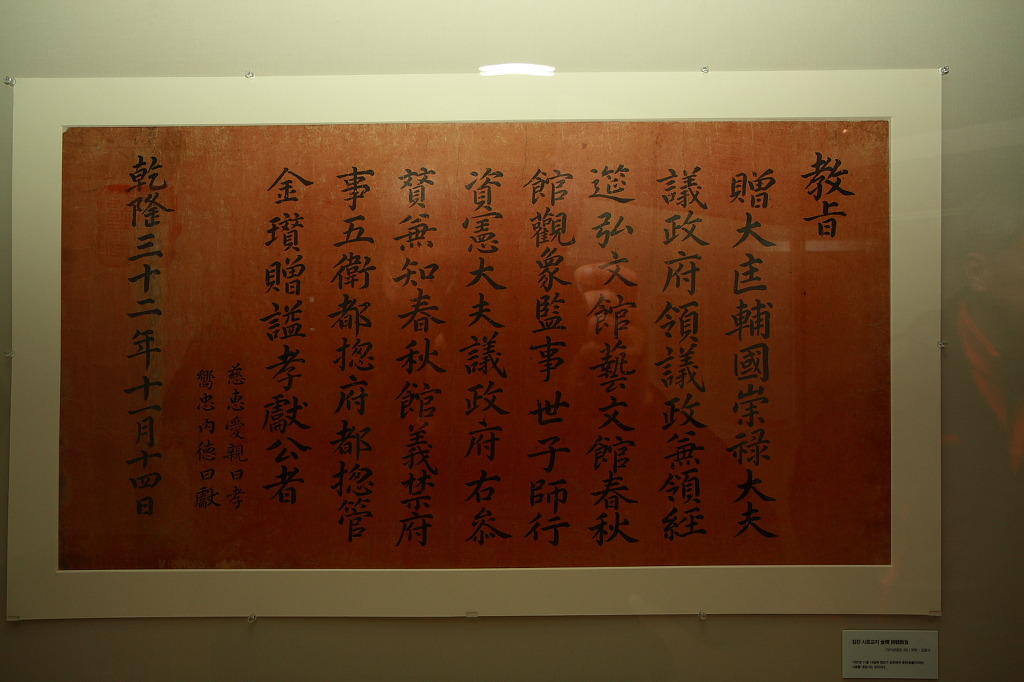 教旨
贈大匡輔國崇祿大夫
議政府領議政兼領經
筵弘文館藝文館春秋
館觀象監事世子師行
資憲大夫議政府右參
贊兼知春秋館義禁府
事五衛都摠府都摠管
金瓚贈謚孝獻公者
慈惠愛親曰孝
嚮忠內德曰獻
乾隆三十二年十一月十四日